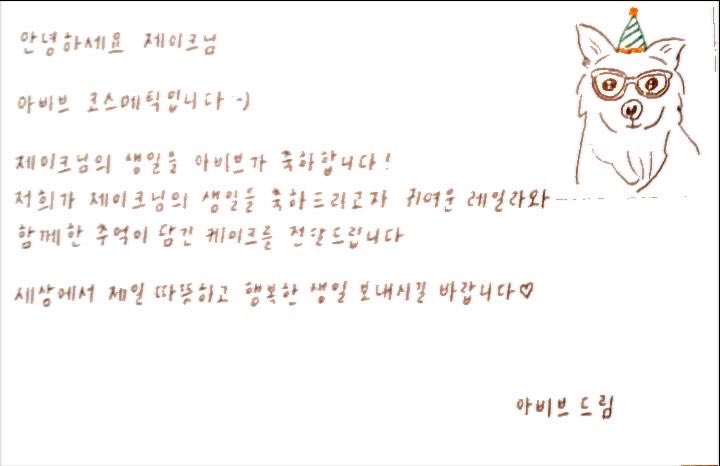 안녕하세요 제이크님
아비브 코스메틱입니다 :-)
제이크님의 생일을 아비브가 축하합니다!
저희가 제이크님의 생일을 축하드리고자 귀여운 레일라와
함께한 추억이 담긴 케이크를 전달드립니다
세상에서 제일 따뜻하고 행복한 생일 보내시길 바랍니다♡
아비브 드림